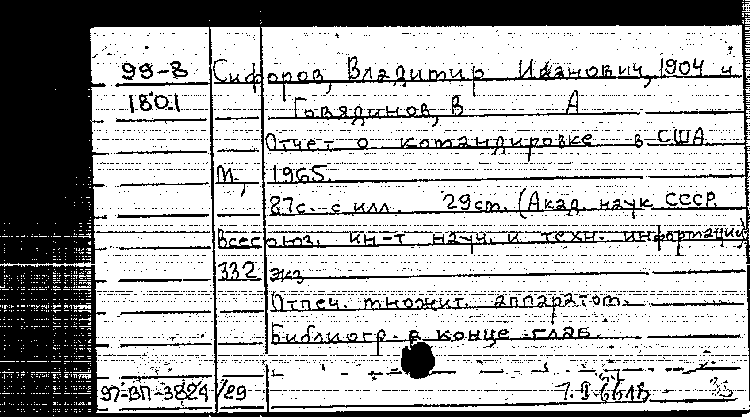 99-8 Сифоров, Владимир Иванович, 1904 и
1801 Говядинов, В А
Отчет о командировке в США
М, 1965.
87с. с илл. 29см. (Акад. наук СССР.
Всесоюз. ин-т науч. и техн. информации)
332 экз
Отпеч. множит. аппаратом.
Библиогр. в конце глав.
97-ВП-3824/29